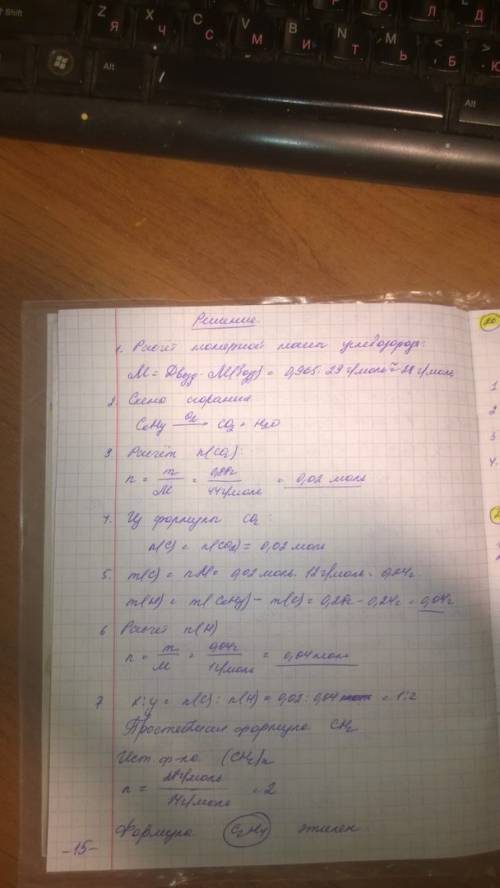 Shift
Z Я
X Ч
C С
V М
B И
N Т
М Ь
< , Б
> . Ю
О
L Д
Alt
Alt
Решение.
1. Расчёт молярной массы углеводорода:
M = Dвозд · M(возд) = 0,965 · 29 г/моль ≈ 28 г/моль
2. Схема сгорания
CxHy O2→ CO2 + H2O
3. Расчёт n(CO2):
n = m/M = /44г/моль = 0,02 моль
4. Из формулы CO2:
n(C) = n(CO2) = 0,02 моль
5. m(C) = n·M = 0,02 моль · 12 г/моль = 0,24г
m(H) = m(CxHy) − m(C) = 0,28г − 0,24г = 0,04г
6 Расчёт n(H)
n = m/M = 0,04г/1г/моль = 0,04 моль
7 x:y = n(C) : n(H) = 0,02 : 0,04 = 1:2
Простейшая формула CH2
Ист. ф-ла (CH2)n
n = 28г/моль/14г/моль = 2
Формула C2H4 этилен
-15-
1
2
3
4.